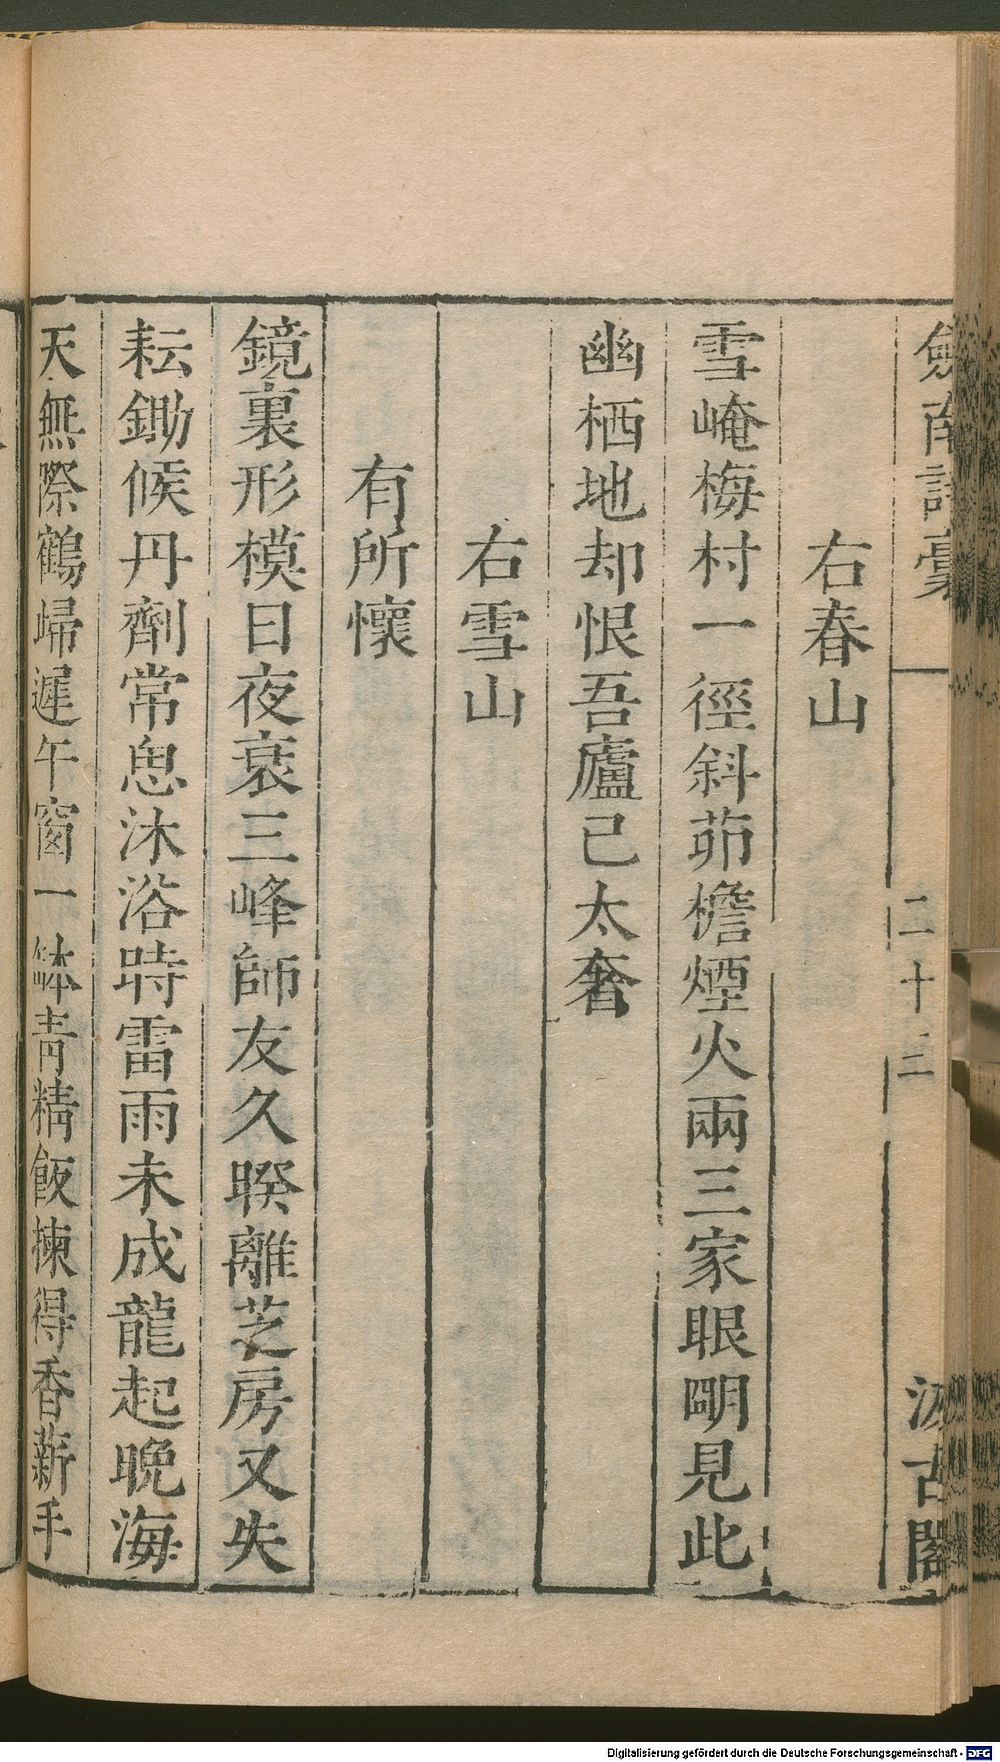 劍南詩藁
二十二
汲古閣
右春山
雪崦梅村一徑斜茆檐煙火兩三家眼明見此
幽栖地却恨吾廬已太奢
右雪山
有所懷
鏡裏形模日夜衰三峰師友久睽離芝房又失
耘鋤候丹劑常思沐浴時雷雨未成龍起晚海
天無際鶴歸遲午窗一鉢青精飯揀得香薪手
Digitalisierung gefördert durch die Deutsche Forschungsgemeinschaft - DFG